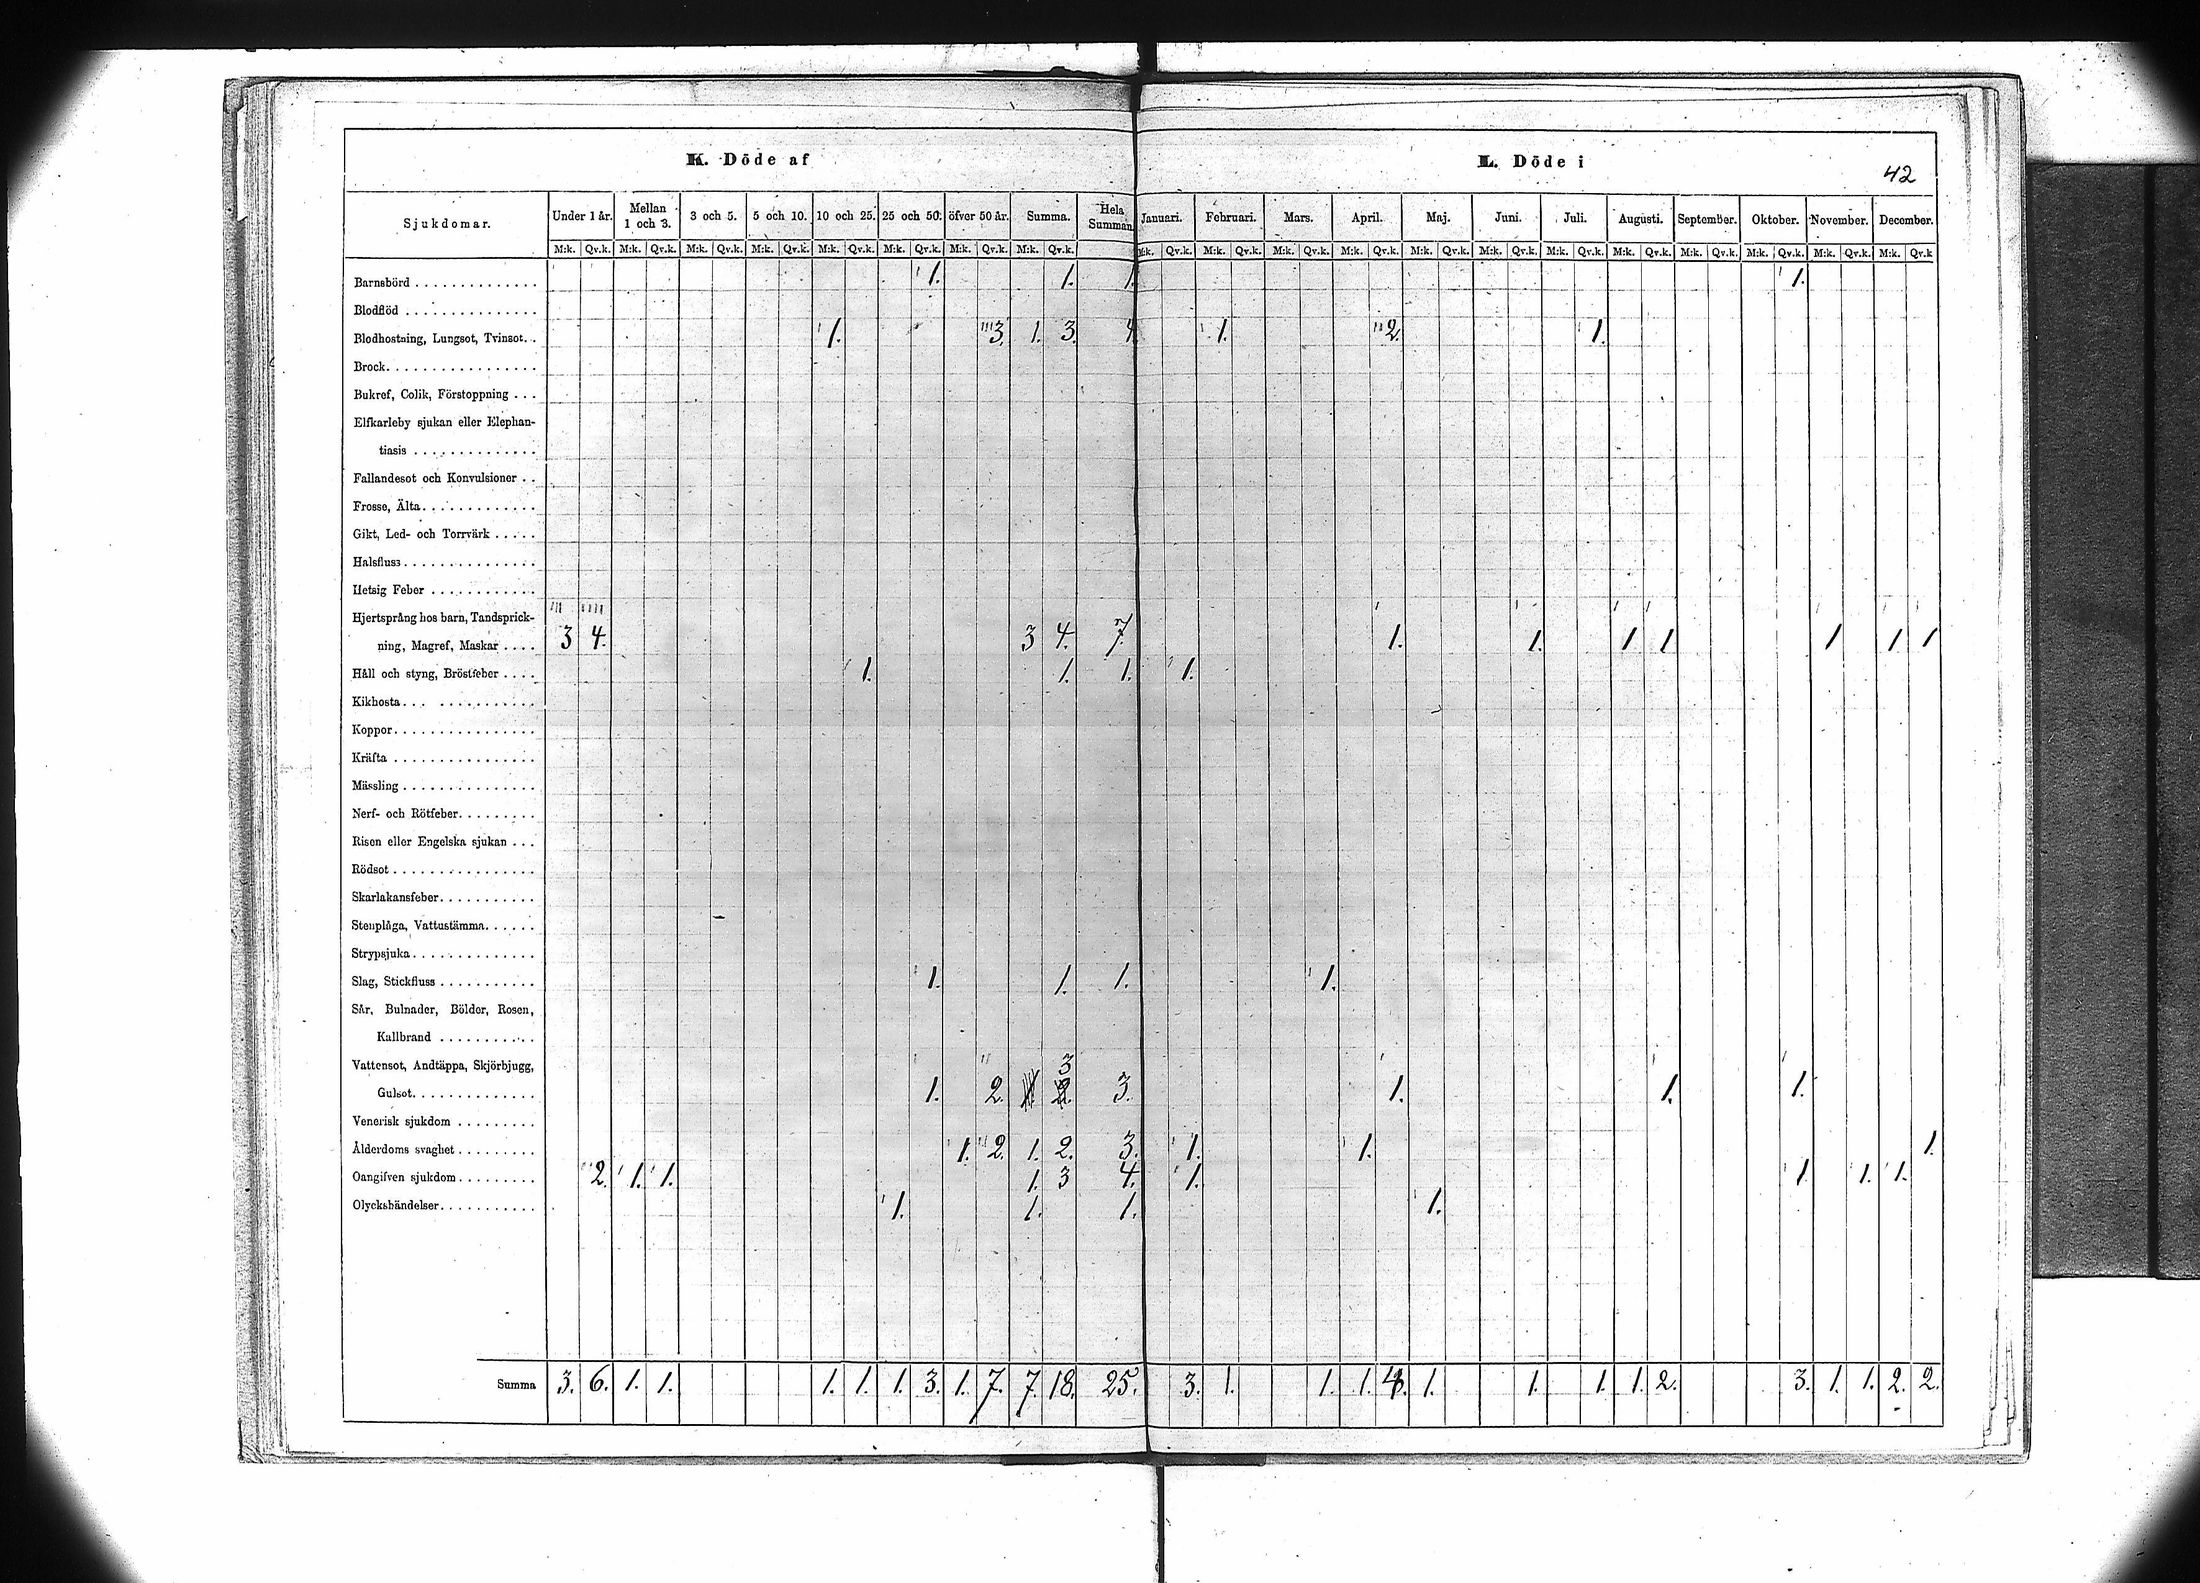 K. Döde af
L. Döde i
42
Sjukdomar. Under 1 år. Mellan 1 och 3. 3 och 5. 5 och 10. 10 och 25. 25 och 50. öfver 50 år. Summa. Hela Summan. Januari. Februari. Mars. April. Maj. Juni. Juli. Augusti. September. Oktober. November. December.
M:k. Qv.k. M:k. Qv.k. M:k. Qv.k. M:k. Qv.k. M:k. Qv.k. M:k. Qv.k. M:k. Qv.k. M:k. Qv.k. M:k. Qv.k. M:k. Qv.k. M:k. Qv.k. M:k. Qv.k. M:k. Qv.k. M:k. Qv.k. M:k. Qv.k. M:k. Qv.k. M:k. Qv.k. M:k. Qv.k. M:k. Qv.k. M:k. Qv.k
Barnsbörd . . . . . . . . . . . . . . 1. 1. 1. 1.
Blodflöd . . . . . . . . . . . . . . .
Blodhostning, Lungsot, Tvinsot. . 1. 3. 1. 3. 4. 1. 2. 1.
Brock. . . . . . . . . . . . . . . . .
Bukref, Colik, Förstoppning . . .
Elfkarleby sjukan eller Elephan-
tiasis . . . . . . . . . . . . . .
Fallandesot och Konvulsioner . .
Frosse, Älta. . . . . . . . . . . . .
Gikt, Led- och Torrvärk . . . . .
Halsfluss . . . . . . . . . . . . . . .
Hetsig Feber . . . . . . . . . . . .
Hjertsprång hos barn, Tandsprick-
ning, Magref, Maskar . . . . 3 4. 3 4. 7. 1. 1. 1 1 1 1 1
Håll och styng, Bröstfeber . . . . 1. 1. 1. 1.
Kikhosta. . . . . . . . . . . . . .
Koppor. . . . . . . . . . . . . . . .
Kräfta . . . . . . . . . . . . . . . .
Mässling . . . . . . . . . . . . . . .
Nerf- och Rötfeber. . . . . . . . .
Risen eller Engelska sjukan . . .
Rödsot . . . . . . . . . . . . . . . .
Skarlakansfeber. . . . . . . . . . .
Stenplåga, Vattustämma. . . . . .
Strypsjuka. . . . . . . . . . . . . .
Slag, Stickfluss . . . . . . . . . . . 1. 1. 1. 1.
Sår, Bulnader, Bölder, Rosen,
Kallbrand . . . . . . . . . . .
Vattensot, Andtäppa, Skjörbjugg, 3
Gulsot. . . . . . . . . . . . . . 1. 2. 2. 3. 1. 1. 1.
Venerisk sjukdom . . . . . . . . .
Ålderdoms svaghet . . . . . . . . . 1. 2. 1. 2. 3. 1. 1. 1.
Oangifven sjukdom . . . . . . . . . 2. 1. 1. 1. 3 4. 1. 1. 1. 1.
Olyckshändelser. . . . . . . . . . . 1. 1. 1. 1.
Summa 3. 6. 1. 1. 1. 1. 1. 3. 1. 7. 7. 18. 25. 3. 1. 1. 1. 4. 1. 1. 1. 1. 2. 3. 1. 1. 2. 2.